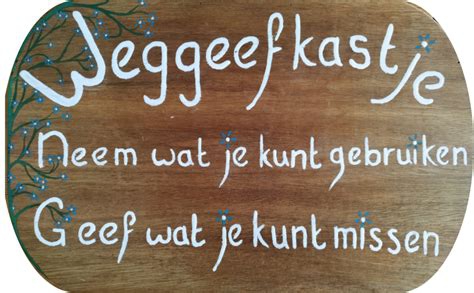 Weggeefkastje
Neem wat je kunt gebruiken
Geef wat je kunt missen